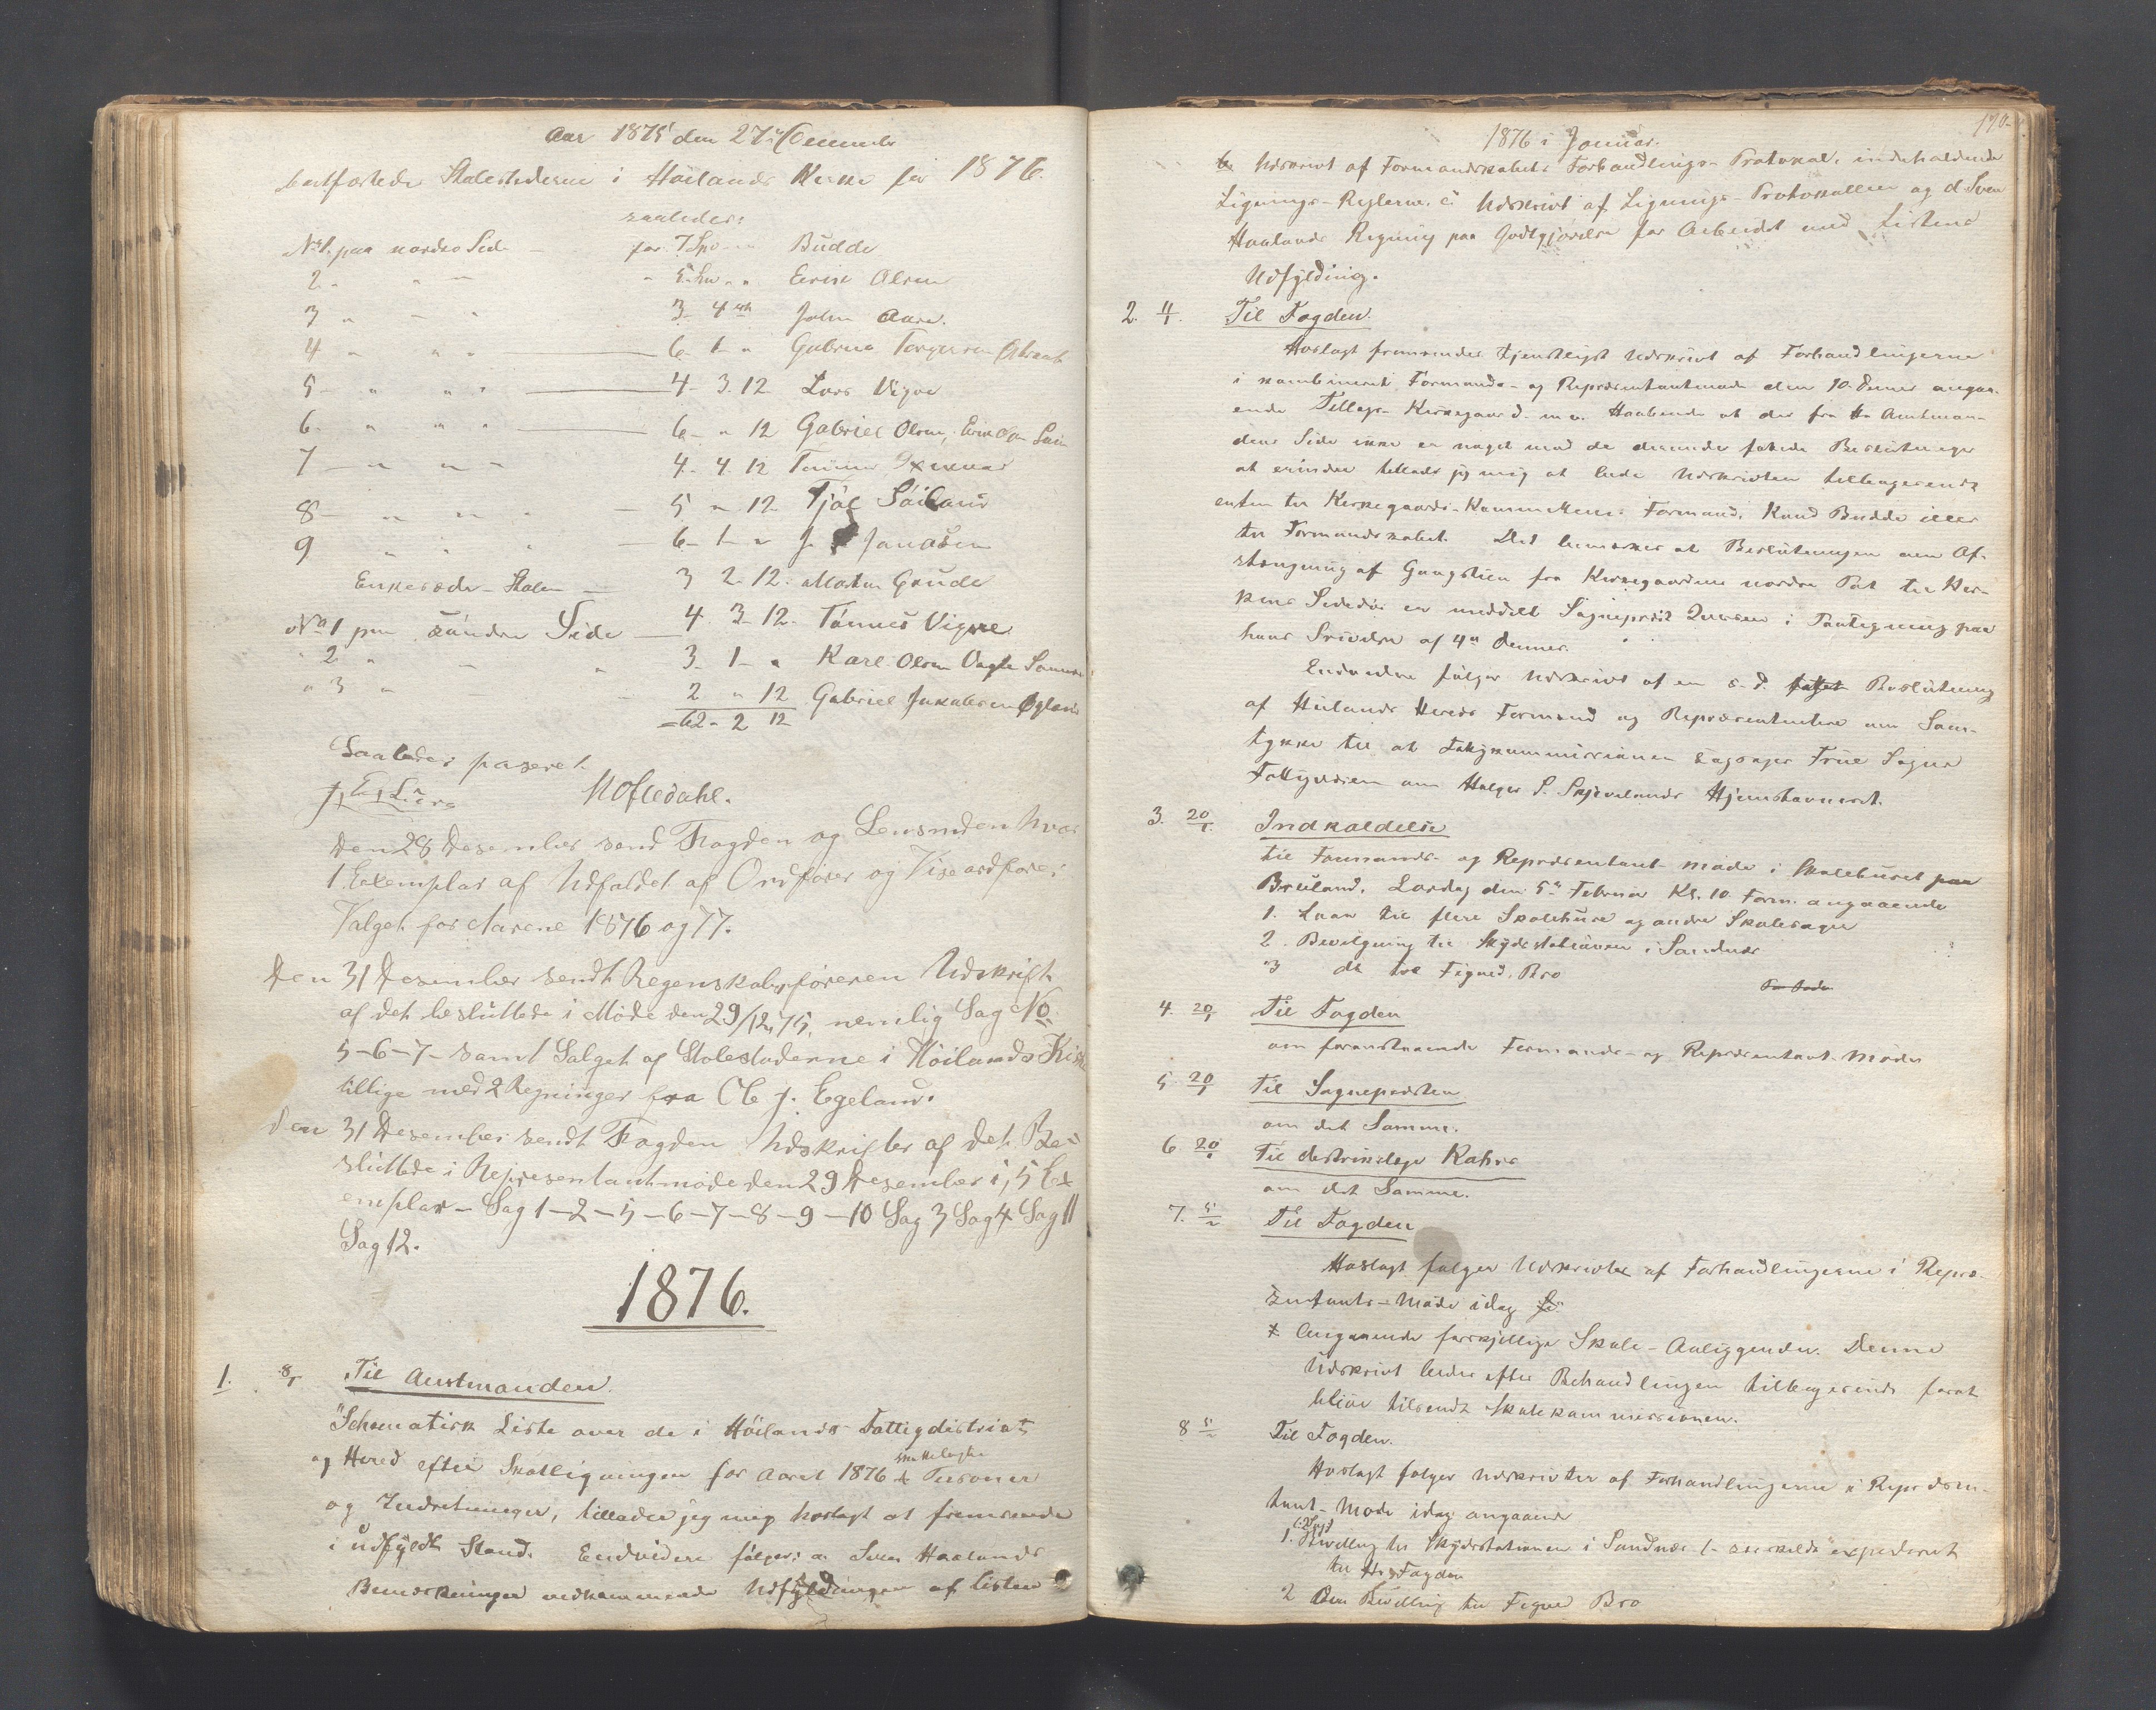 Aar 1875 den 27de Decemeber
bortfæstede Stolestederne i Höilands Kirke for 1876.
saaledes:
No 1. paa nordre Side - for 7 Spd - " Budde
2 - " - " - " 5 - " " Erik Olsen
3 " - " 3 - 4 - John Aase.
4 " " " - 6 - 1 - " Gabriel Torgersen
5 - " " " - 4 - 3. 12 Lars Vigve
6 - " " " - 6 - " 12 Gabriel Olsen,
7 - " " " 4 - 4. 12
8 - " " " - 5 " 12 Tjöl Söiland
9 " " " - 6 - 1 - " J. Jonasen
Enkesæde-Stolen - 3 2 - 12. Morten Grude
No 1 paa söndre Side - 4. 3 - 12. Tönnes Vigve
" 2 " - " 3 - 1 - " Karl Olsen
" 3 " - - 2 " 12 Gabriel Jakobsen Ogland
= 62 - 2 12
Saaledes passeret
J. E. Liers Hofledahl.
Den 28 Desember send Fogden og Lensmden hver
1 Exemplar af Udfaldet af Ordfører og Viseordfører
Valget for Aarene 1876 og 77.
Den 31 Desember sendt Regenskabsføreren Udskrift
af det besluttede i Møde den 29/12 75, nemlig Sag No
5-6-7- samt Salget af Stolestederne i Höilands Kirke
tillige med 2 Regninger fra Ole J. Egeland.
Den 31 Desember sendt Fogden Udskrifter af det Be-
sluttede i Representantmöde den 29 Desember i 5 Ex
emplar - Sag 1-2-5-6-7-8-9-10 Sag 3 Sag 4 Sag 11
Sag 12.
1876.
1. 8/1 Til Amtmanden.
"Schematisk Liste over de i Höilands Fattigdistrikt
og Hered efter Skatligningen for Aaret 1876 skattelagte Personer
og Indretninger, tillader jeg mig hoslagt at fremsende
i udfyldt Stand. Endvidere fölger: a. Sven Haalands
Bemærkninger vedkommende Udfyldningen af Listen
190.
1876 i Januar.
b. Udskrivt af Formandskabets Forhandlings-Protokol, indeholdende
Lignings-Reglerne. c. Udskrivt af Lignings-Protokollen og d. Sven
Haalands Regning paa Godtgjörelse for Arbeidet med Listens
Udfylding.
2. 11/1. Til Fogden.
Hoslagt fremsendes tjenstligst Udskrivt af Forhandlingerne
i kombineret Formands- og Repræsentantmöde den 10. Denes angaa-
ende Tillægs-Kirkegaard m. v. Haabende at der fra Hr. Amtman-
dens Side ikke er noget mod de derunder fattede Beslutninger
at erindre tillader jeg mig at bede Udskrivten tilbagesendt
enten til Kirkegaards-Kommitteens Formand, Knud Budde eller
til Formandskabet. Det bemærkes at Beslutningen om Af-
stængning af Gangstien fra Kirkegaardens nordre Port til Kir-
kens Sidedör er meddelt Sogneprest Iversen i Paategning paa
hans Skrivelse af 4de Dennes.
Endvidere fölger Udskrivt af en s. d. fattet Beslutning
af Höilands Hereds Formænd og Repræsentantere om Sam-
tykke til at Fattigkommissionen sagsöger Frue Sogns
Fattigvæsen om Holger S. Skjævelands Hjemstavnsret.
3. 20/1. Indkaldelse
til Formands- og Repræsentant-möde i Skolehuset paa
Breiland, Lördag den 5te Februar Kl. 10 Form. angaaende
1. Laan til flere Skolehuse og andre Skolesager
2. Bevilgning til Skydsstationen i Sandnes
3 do til Figved Bro
4. 20/1 Til Fogden
om foranstaaende Formands- og Repræsentant-Möder
5 20/1 Til Sognepresten
om det Samme.
6 20/1 Til distriktslæge Kahrs
om det Samme.
7. 5/2 Til Fogden
Hoslagt fölger Udskrivter af Forhandlingerne i Repræ-
sentants-Möde idag
Angaaende forskjellige Skole-Anliggender. Denne
Udskrivt bedes efter Behandlingen tilbagesendt forat
blive tilsendt Skolekommissionen.
8 5/2 Til Fogden.
Hoslagt fölger Udskrivter af Forhandlingerne i Repræsen-
tant-Möde idag angaaende
1. Bevilling til Skydsstationen i Sandnes (- særskilt expederet
til Hr Fogden
2 Om Bevilling til Figved Bro